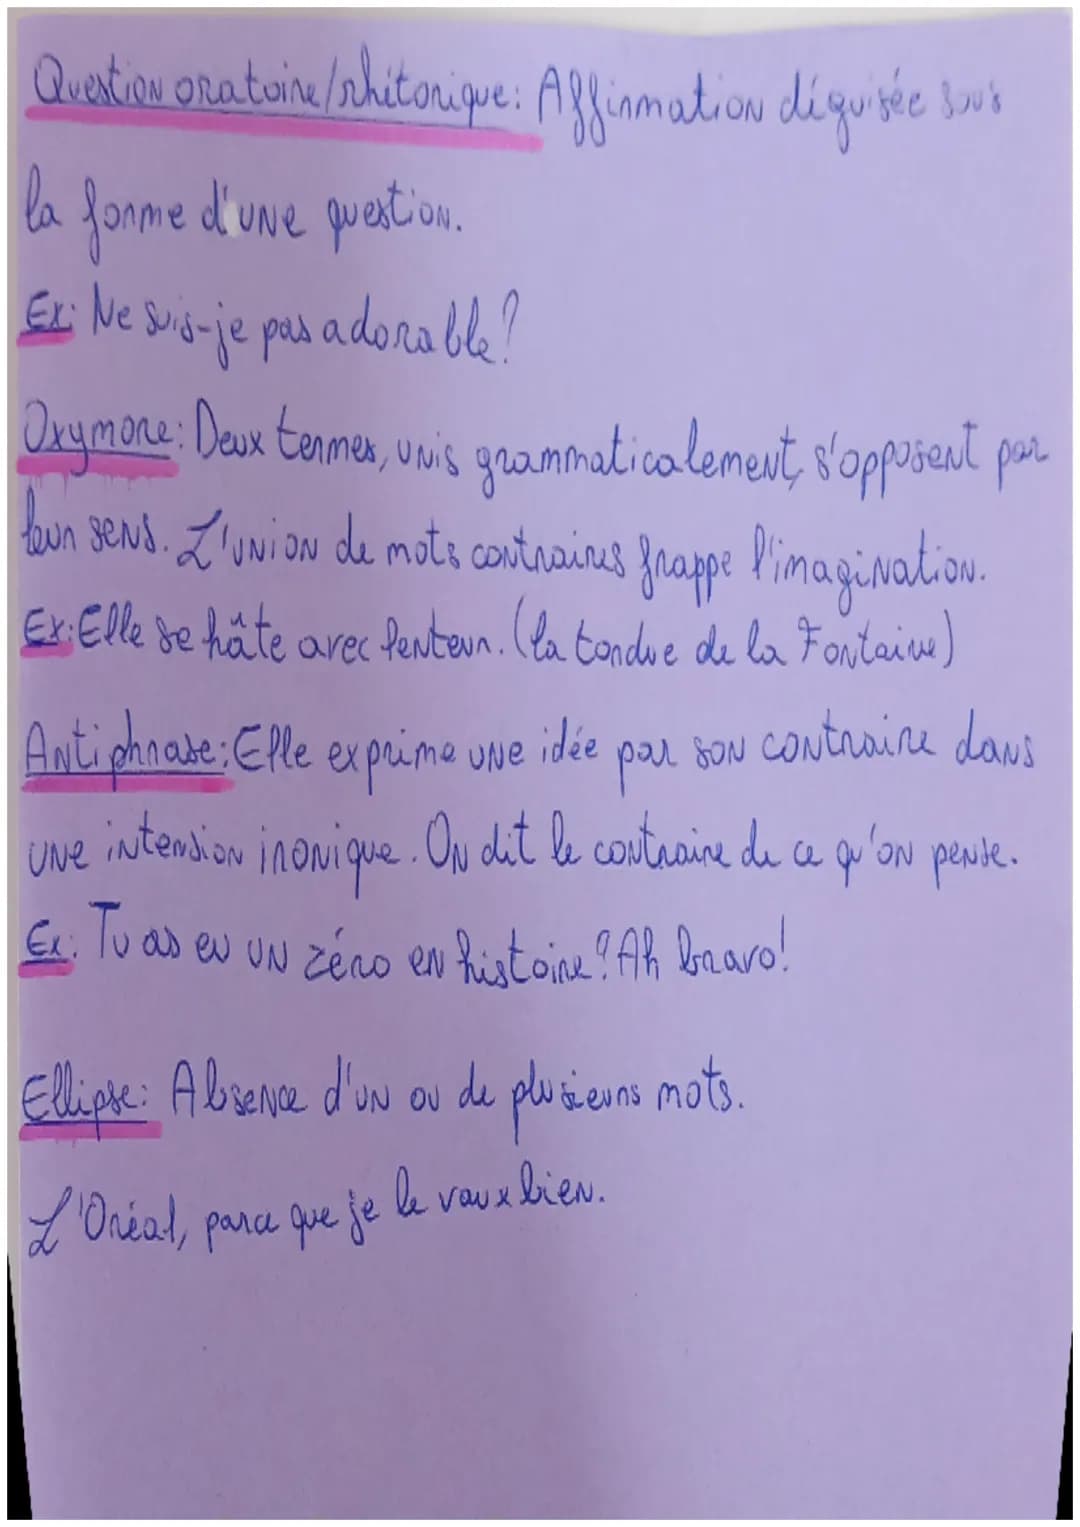 Question oratoire/rhétorique: Affirmation déguisée sous
la forme d'une question.
Ex: Ne suis-je pas adorable?
Oxymore: Deux termes, unis grammaticalement, s'opposent par
leur sens. L'union de mots contraires frappe l'imagination.
Ex: Elle se hâte avec lenteur. (la tondue de la Fontaine)
Antiphrase: Elle exprime une idée par son contraire dans
une intension ironique. On dit le contraire de ce qu'on pense.
Ex: Tu as eu un zéro en histoire? Ah bravo!
Ellipse: Absence d'un ou de plusieurs mots.
L'Oréal, parce que je le vaux bien.